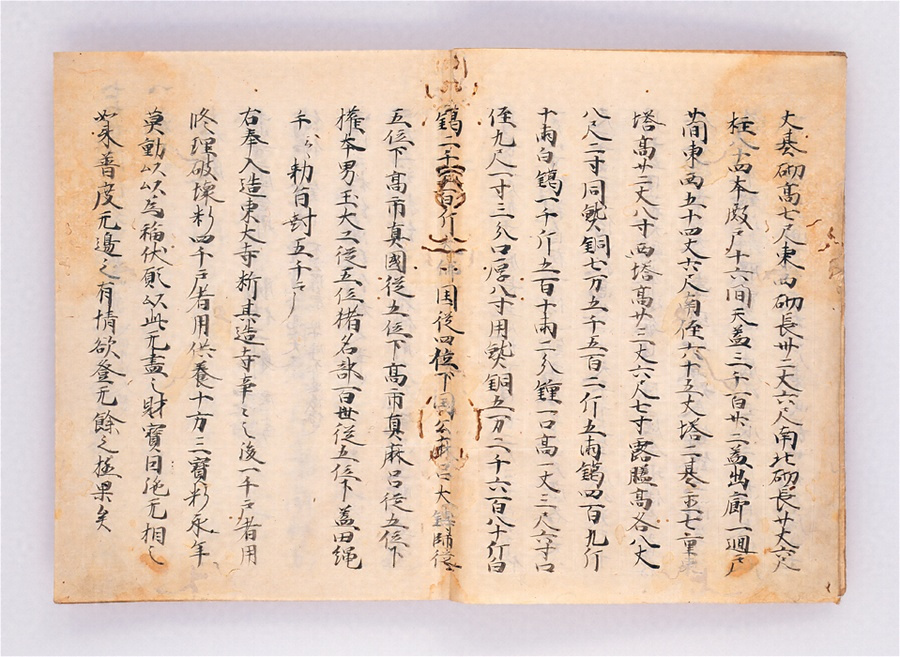 大基砌高七尺東西砌長卅二丈六尺南北砌長廿丈六尺
柱八十四本殿戸十六間天盖三千百廿二盖出廊一廻戸
間東西五十四丈六尺南径六十五丈塔二基並七重東
塔高廿三丈八寸西塔高廿三丈六尺七寸露盤高各八丈
八尺二寸同熟銅七万五千五百二斤五両鍚四百九斤
十両白鍚一千斤五百十両二分鐘一口高一丈三尺六寸口
径九尺一寸三分口厚八寸用熟銅五万二千六百八十斤白
鍚二千三百斤大佛国従四位下国公麻呂大鋳師従
五位下高市真國従五位下高市真麻呂従五位下
椎本男玉大工従五位猪名部百世従五位下益田縄
千々勅旨封五千戸
右奉入造東大寺料其造寺事々之後一千戸者用
修理破壊料四千戸者用供養十方三寳料永年
莫動以以為福伏願以此无盡之財寳因施无相之
如來普度无邊之有情欲登无餘之極果矣